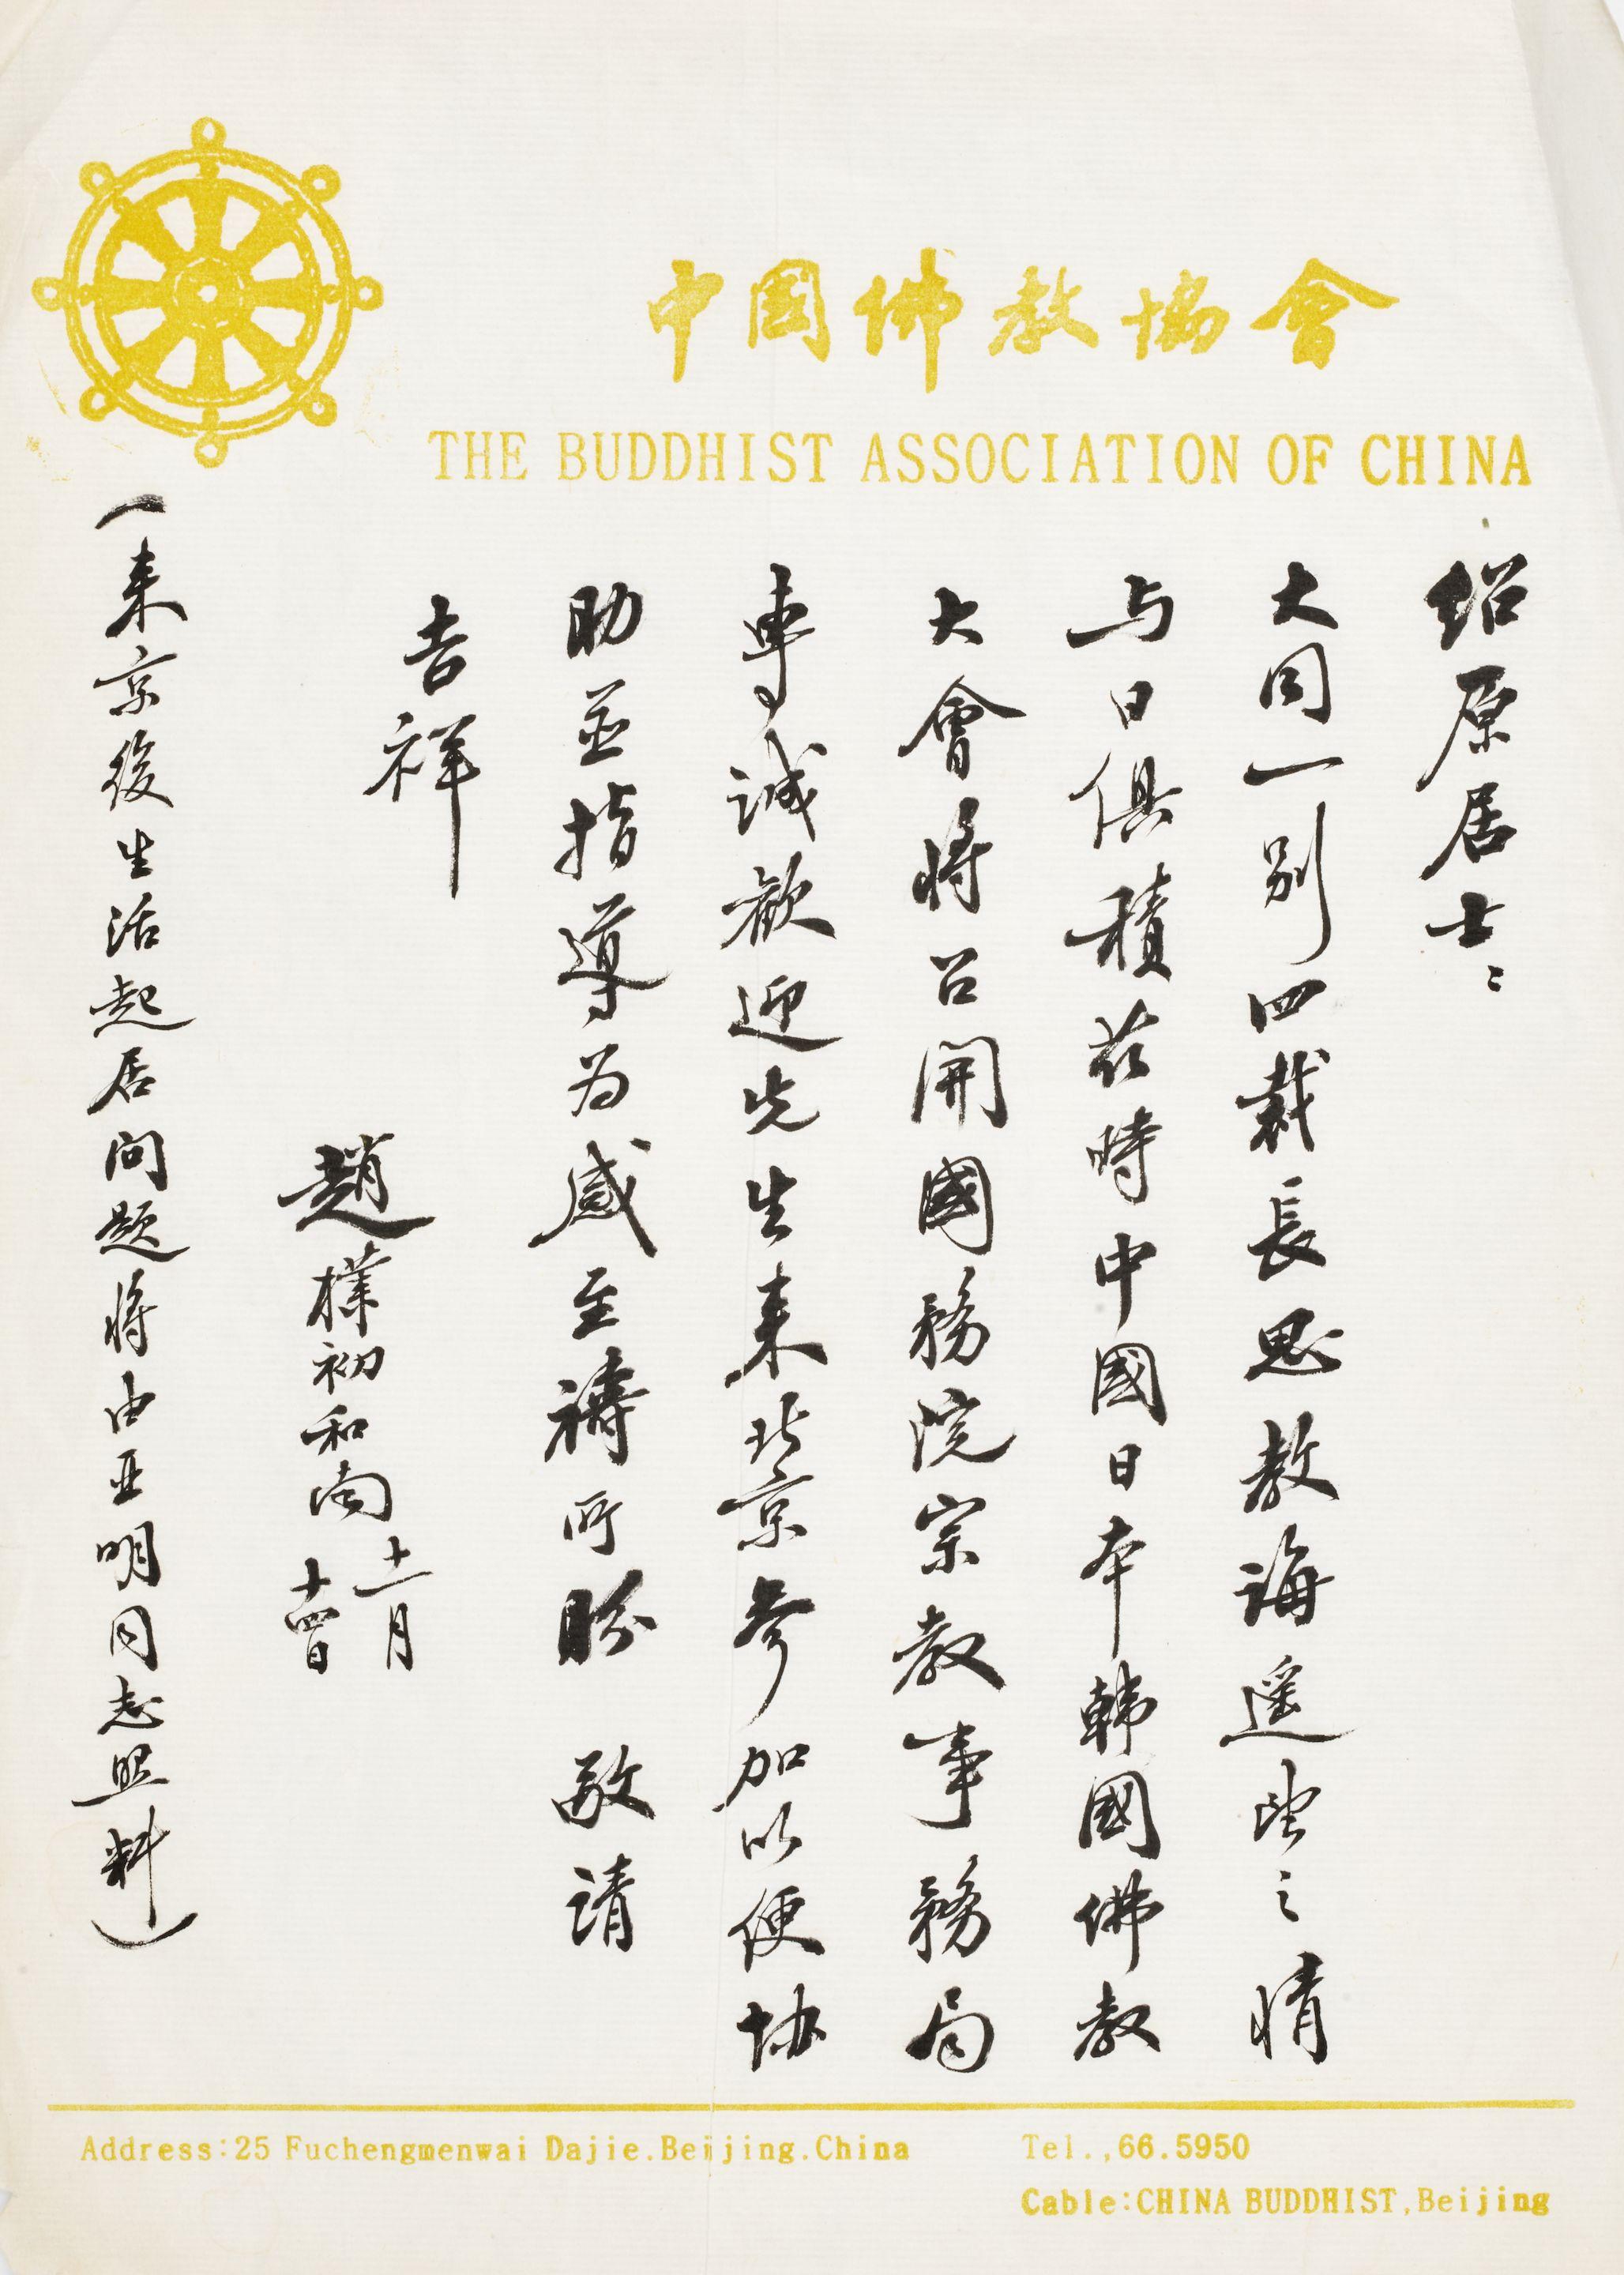 中国佛教協會
THE BUDDHIST ASSOCIATION OF CHINA
绍原居士：
大同一别四载長思教誨遥望之情
与日俱積兹時中國日本韩國佛教
大會将召開國務院宗教事務局
專诚歡迎先生来北京参加以便协
助並指導为感至禱所盼 敬请
吉祥
趙樸初和南 十一月
十四日
（来京後生活起居问题将由亚明同志照料）
Address:25 Fuchengmenwai Dajie.Beijing.China
Tel.,66.5950
Cable:CHINA BUDDHIST,Beijing